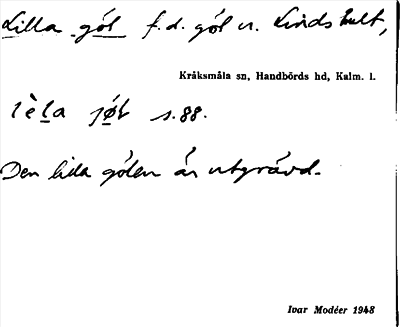 Lilla göl f.d. göl n. Lindshult,
Kråksmåla sn, Handbörds hd, Kalm. l.
lèla jøl s. 88.
Den lilla gölen är utgrävd.
Ivar Modéer 1948